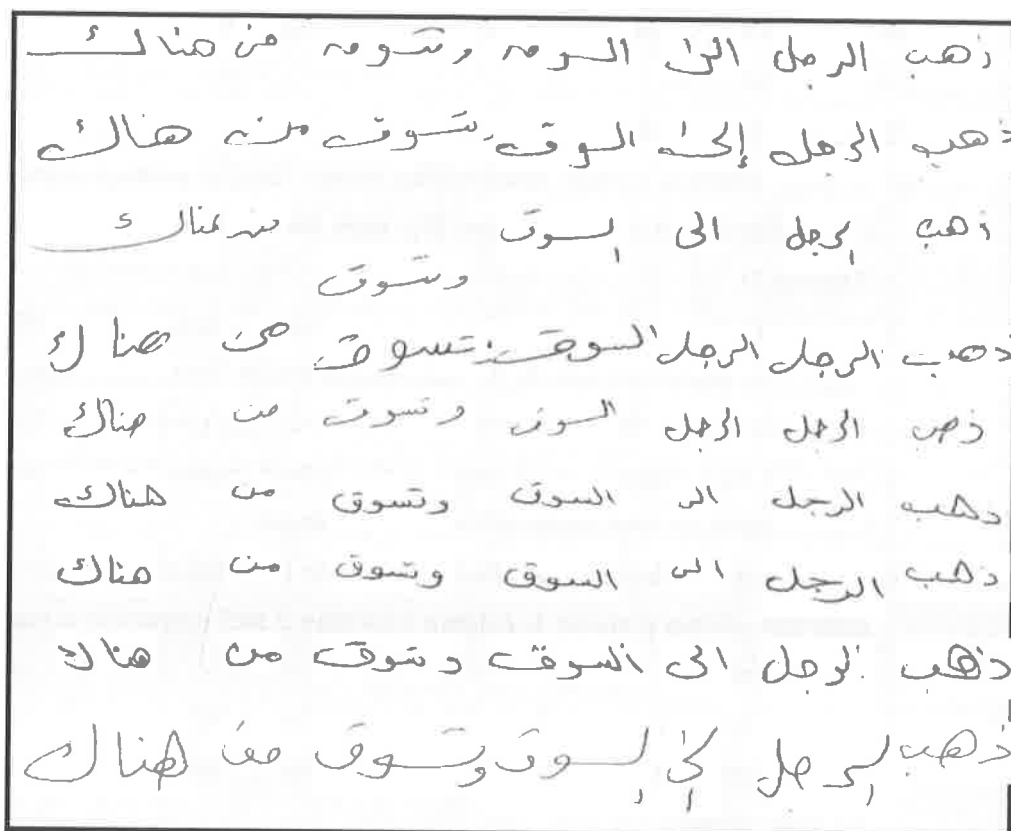 ذهب الرجل الى السوق وتسوق من هناك
ذهب الرجل إلى السوق وتسوق من هناك
ذهب الرجل الى السوق من هناك
وتسوق
ذهب الرجل الرجل السوق وتسوق من هناك
ذهب الرجل الرجل السوق وتسوق من هناك
ذهب الرجل الى السوق وتسوق من هناك
ذهب الرجل الى السوق وتسوق من هناك
ذهب الرجل الى السوق وتسوق من هناك
ذهب الرجل إلى السوق وتسوق من هناك